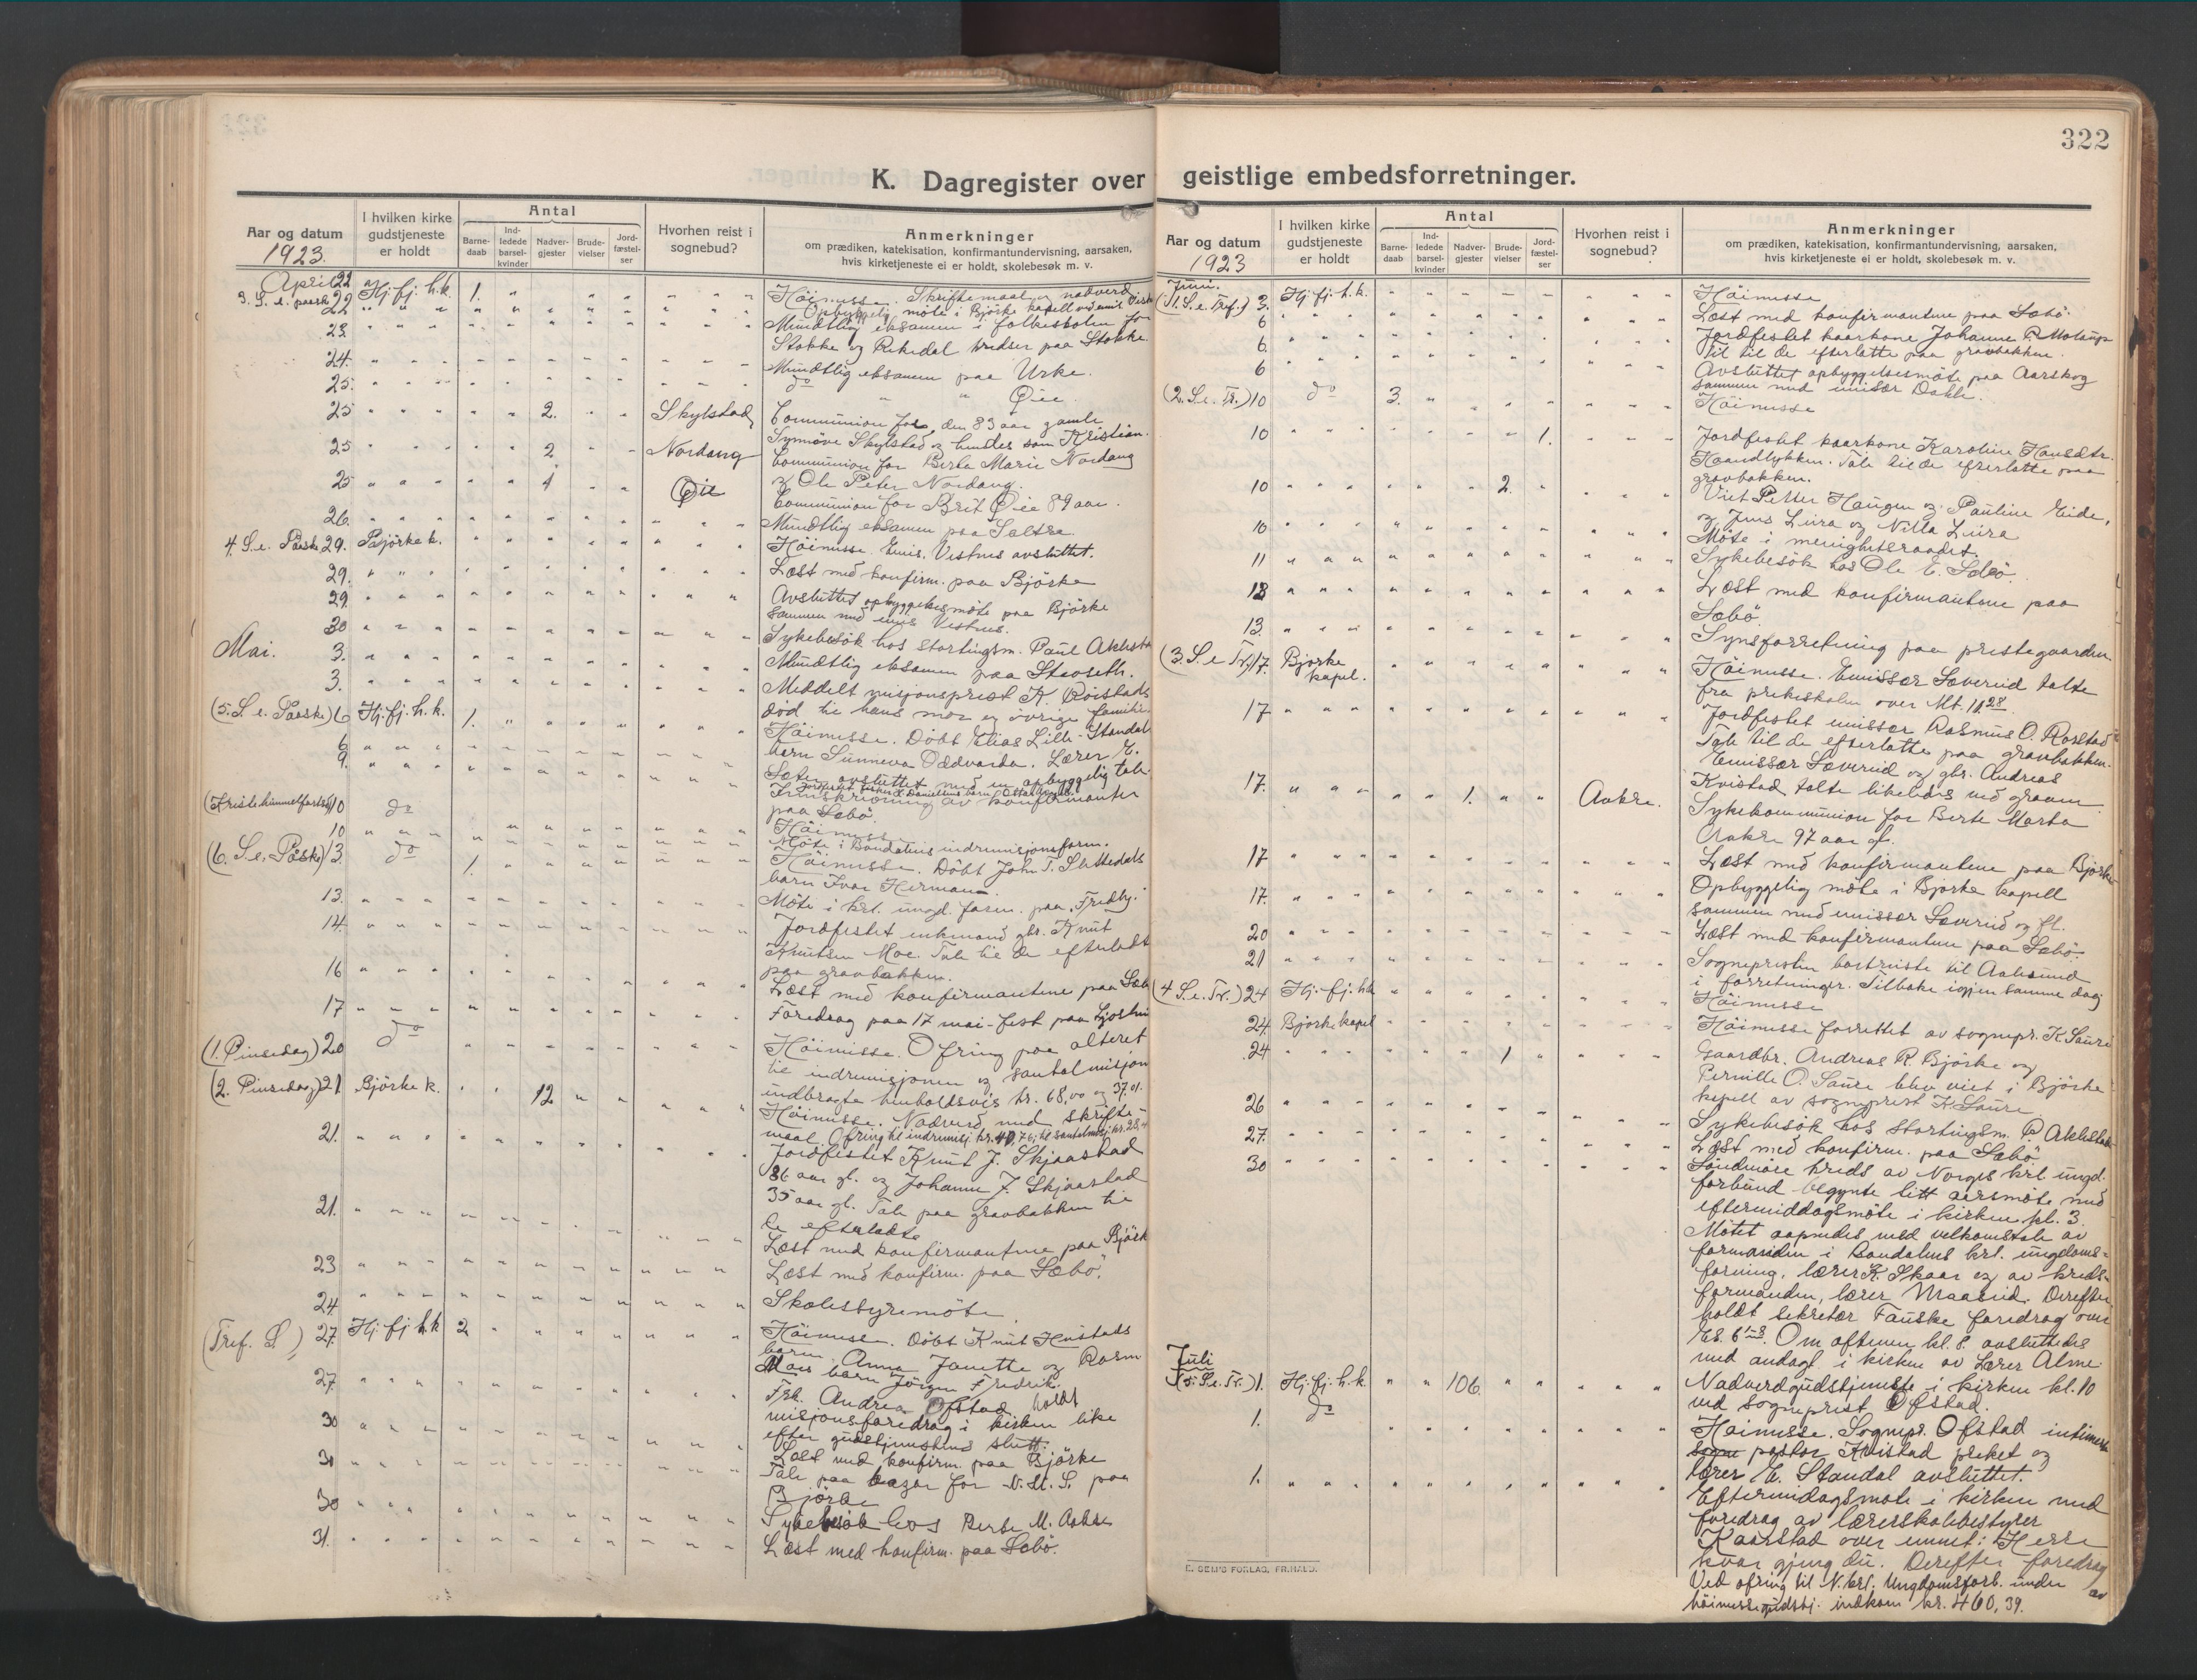 322
K. Dagregister over geistlige embedsforretninger.
Aar og datum
1923.
I hvilken kirke gudstjeneste er holdt
Antal
Barne-daab
Ind-ledede barsel-kvinder
Nadver-gjester
Brude-vielser
Jord-fæstel-ser
Hvorhen reist i sognebud?
Anmerkninger
om prædiken, katekisation, konfirmantundervisning, aarsaken,
hvis kirketjeneste ei er holdt, skolebesøk m. v.
April 22 Hj. fj. h.k. 1. Höimesse. Skriftemaal og nadverd.
22 Opbyggelig möte i Björke kapell
23. Mundtlig eksamen i folkeskolen for
Stokke og Rekedal kredser paa Stokke.
24. Mundtlig eksamen paa Urke.
25. do " " Öie
25 2. Skylstad Communion for den 83 aar gamle
Synnöve Skylstad og hendes søn Kristian.
25 2 Nordang Communion for Berte Marie Nordang
og Ole Peter Nordang.
25 1 Öie Communion for Brit Öie 89 aar.
26. Mundtlig eksamen paa Sætre
4. S. e. Paaske 29. Björke k. Höimesse. Emis. Vestnes avsluttet.
29. Læst med konfirm. paa Björke
29. Avsluttet opbyggelsesmöte paa Björke
sammen med emis Vestnes.
30 Sykebesök hos stortingsm. Paul
Mai. 3. Mundtlig eksamen paa
3. Meddelt misjonsprest K.
död til hans mor og övrige familie.
(5. S. e. Paaske) 6 Hj. fj. h. k. 1. Höimesse. Döbt Elias Lille-Standal
barn Sunneva Oddvarda. Lærer E.
6 Sæter avsluttet med en opbyggelig tale
9. Indskrivning av konfirmanter
paa Sæbö.
(Kristi himmelfartsd) 10 do Höimesse
10 Möte i Bondalens indremisjonsforen.
(6. S. e. Paaske) 13. do 1. Höimesse. Döbt John T. Slettedals
barn Ivar Herman.
13. Möte i krl. ungd. foren. paa "Fredly."
14. Jordfestet enkemand gbr. Knut
Knutsen Moe. Tale til de efterladte
paa gravbakken.
16 Læst med konfirmantene paa Sæb
17 Foredrag paa 17 mai-fest paa
(1. Pinsedag) 20 do Höimesse. Ofring paa alteret
til indremisjonen og santalmisjon
indbragte henholdsvis kr. 68,00 og 37,
(2. Pinsedag) 21 Björke k. 12 Höimesse. Nadverd med skrifte-
maal. Ofring til indremisj. kr. 40,76; til santalmisj. kr. 28,
21. Jordfestet Knut J. Skjaastad
86 aar gl. og Johanne J. Skjaastad
35 aar gl. Tale paa gravbakken til
de efterladte
21. Læst med konfirmantene paa Björk
23 Læst med konfirm. paa Sæbö.
24 Skolestyremöte
(Tref. S.) 27. Hj. fj. h.k 2. Höimesse. Döbt Knut Hustads
barn Anna Janette og Rasm
Moes barn Jörgen Fredrik.
27. Frk. Andrea Ofstad holdt
misjonsforedrag i kirken like
efter gudstjenestens slutt.
30 Læst med konfirm. paa Björke
30 Tale paa bazar for N.M.S. paa
Björke
30 Sykebesök hos Berte M. Aakre
31. Læst med konfirm. paa Sæbö.
Aar og datum
1923
I hvilken kirke gudstjeneste er holdt
Antal
Barne-daab
Ind-ledede barsel-kvinder
Nadver-gjester
Brude-vielser
Jord-fæstel-ser
Hvorhen reist i sognebud?
Anmerkninger
om prædiken, katekisation, konfirmantundervisning, aarsaken,
hvis kirketjeneste ei er holdt, skolebesøk m. v.
Juni.
(1. S. e. Tref.) 3. Hj. fj. h. k. Höimesse
6 Læst med konfirmantene paa Sæbö.
6. Jordfestet kaarkone Johanne P.
Tale til de efterlatte paa gravbakken.
6 Avsluttet opbyggelsesmöte paa Aarskog
sammen med emisær Dahle.
(2. S. e. Tr.) 10 do 3. Höimesse
10 1. Jordfestet kaarkone Karoline Hansdtr.
Haandlykken. Tale til de efterlatte paa
gravbakken.
10 2. Viet Petter Haugen og Pauline Eide,
og Jens Liira og Nilla Liira
10 Möte i menighetsraadet.
11 Sykebesök hos Ole E. Sæbö.
12 Læst med konfirmantene paa
Sæbö.
13. Synsforretning paa prestegaarden
(3. S. e. Tr.) 17. Bjorke kapel. Höimesse. Emissær Sæverud talte
fra prekestolen over Mt. 11 28.
17 Jordfestet emissær Rasmus O.
Tale til de efterlatte paa gravbakken.
Emissær Sæverud og gbr. Andreas
Kvistad talte likeledes ved graven
17. 1. Aakre. Sykekommunion for Berte Marta
Aakre 97 aar gl.
17 Læst med konfirmantene paa Bjorke
17. Opbyggelig möte i Bjorke kapell
sammen med emissær Sæverud og fl.
20 Læst med konfirmantene paa Sæbö
21 Sognepresten bortreiste til Aalesund
i forretninger. Tilbake igjen samme dag
(4 S. e. Tr.) 24 Hj. fj. h.k Höimesse
24 Bjorke kapel Höimesse forrettet av sognepr. K. Saure
24 1 Gaardbr. Andreas R. Björke og
Pernille O. Saure blev viet i Björke
kapell av sogneprest K. Saure
26 Sykebesök hos stortingsm. P.
27. Læst med konfirm. paa Sæbö
30 Söndmöre kreds av Norges krl. ungd.
forbund begynte sitt aarsmöte med
eftermiddagsmöte i kirken kl. 3.
Mötet aapnedes med velkomstale av
formanden i Bondalens krl. ungdoms=
forening, lærer K. Skaar og av kreds-
formanden, lærer Maaseid. Derefter
holdt sekretær Fauske foredrag over
Es. 6 1-8. Om aftenen kl. 8. avsluttedes
med andagt i kirken av lærer Alme.
Juli
(5. S. e. Tr.) 1. Hj. fj. h. k. 106. Nadverdgudstjeneste i kirken kl. 10
ved sogneprest Ofstad.
1. do Höimesse. Sognepr. Ofstad
pastor Kvistad preket og
lærer E. Standal avsluttet.
1. Eftermidagsmöte i kirken med
foredrag av lærerskolebestyrer
Kaarstad over emnet: Herre
kvar gjeng du. Derefter foredrag
av
Ved ofring til N. krl. Ungdomsforb. under
höimessegudstj. indkom kr. 460,39.
E. SEM'S FORLAG, FR.HALD.